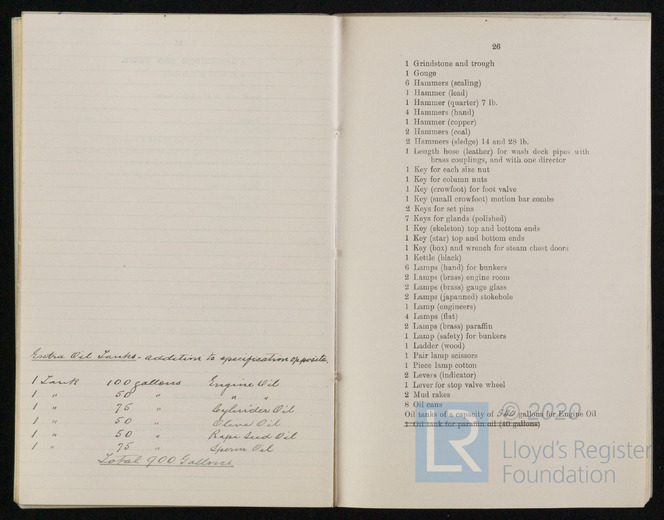 Extra Oil Tanks - addition to specification opposite.
1 Tank 100 gallons Engine Oil
1 " 50 " " "
1 " 75 " Cylinder Oil
1 " 50 " Olive Oil
1 " 50 " Rape Seed Oil
1 " 75 " Sperm Oil
Total 900 Gallons
26
1 Grindstone and trough
1 Gouge
6 Hammers (scaling)
1 Hammer (lead)
1 Hammer (quarter) 7 lb.
4 Hammers (hand)
1 Hammer (copper)
2 Hammers (coal)
2 Hammers (sledge) 14 and 28 lb.
1 Length hose (leather) for wash deck pipes with
brass couplings, and with one director
1 Key for each size nut
1 Key for column nuts
1 Key (crowfoot) for foot valve
1 Key (small crowfoot) motion bar
2 Keys for set pins
7 Keys for glands (polished)
1 Key (skeleton) top and bottom ends
1 Key (star) top and bottom ends
1 Key (box) and wrench for steam chest doors
1 Kettle (black)
6 Lamps (hand) for bunkers
2 Lamps (brass) engine room
2 Lamps (brass) gauge glass
2 Lamps (japanned) stokehole
1 Lamp (engineers)
4 Lamps (flat)
2 Lamps (brass) paraffin
1 Lamp (safety) for bunkers
1 Ladder (wood)
1 Pair lamp scissors
1 Piece lamp cotton
2 Levers (indicator)
1 Lever for stop valve wheel
2 Mud rakes
8 Oil cans
Oil tanks of a capacity of 500 gallons for Engine Oil
1 Oil tank for paraffin oil (40 gallons)
© 2020
LR Lloyd's Register
Foundation